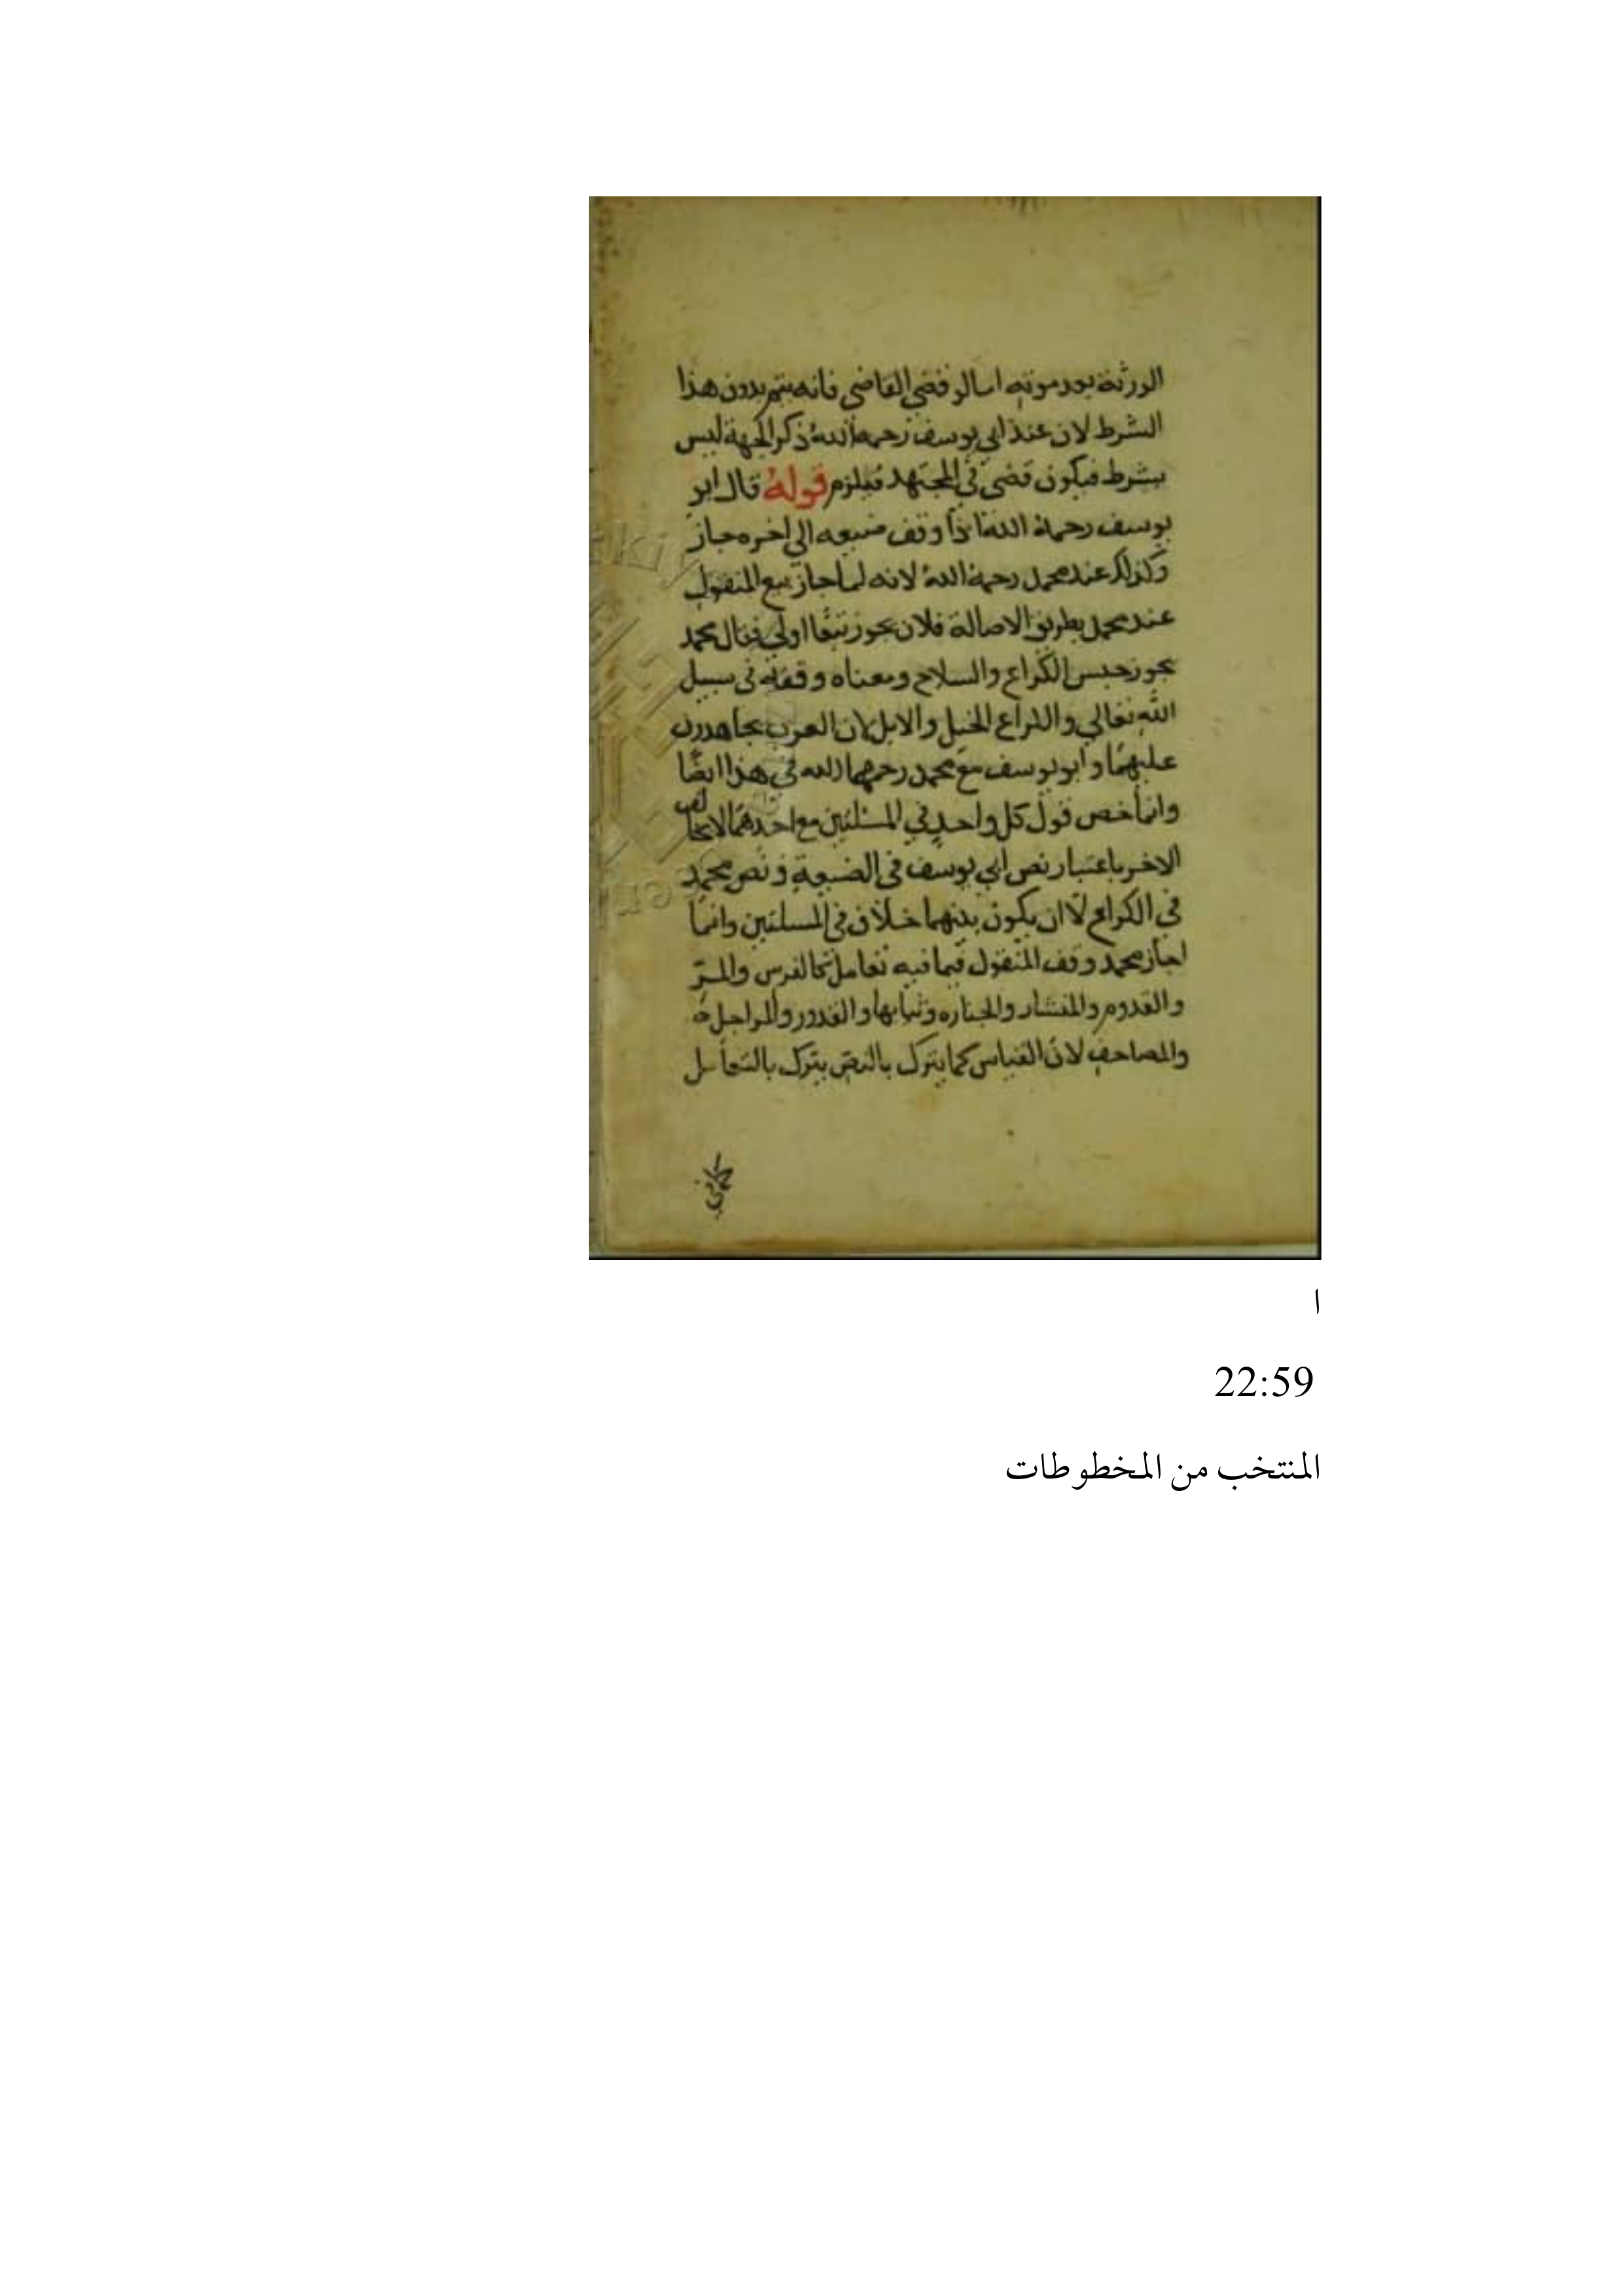 الورثة بعد موته اما لو قضي القاضي فانه يتم بدون هذا
الشرط لان عند ابي يوسف رحمه الله ذكر الجهة ليس
بشرط فيكون قضي في المجتهد فيلزم قوله قال ابو
يوسف رحمه الله اذا وقف ضيعه الي اخره جاز
وكذلك عند محمد رحمه الله لانه لما جاز بيع المنقول
عند محمد بطريق الاصالة فلان يجوز تبعا اولي قال محمد
يجوز حبس الكراع والسلاح ومعناه وقفه في سبيل
الله تعالي والكراع الخيل والابل لان العرب يجاهدون
عليهما وابو يوسف مع محمد رحمهما الله في هذا ايضا
وانما خص قول كل واحد في المسئلتين مع احدهما لا يخالف
الاخر باعتبار نص ابي يوسف في الضيعة ونص محمد
في الكراع لا ان يكون بينهما خلاف في المسلتين وانما
اجاز محمد وقف المنقول فيما فيه تعامل كالفرس والمر
والقدوم والمنشار والجنازه وثيابها والقدور والمراجل
والمصاحف لان القياس كما يترك بالنص يترك بالتعامل
ا
22:59
المنتخب من المخطوطات